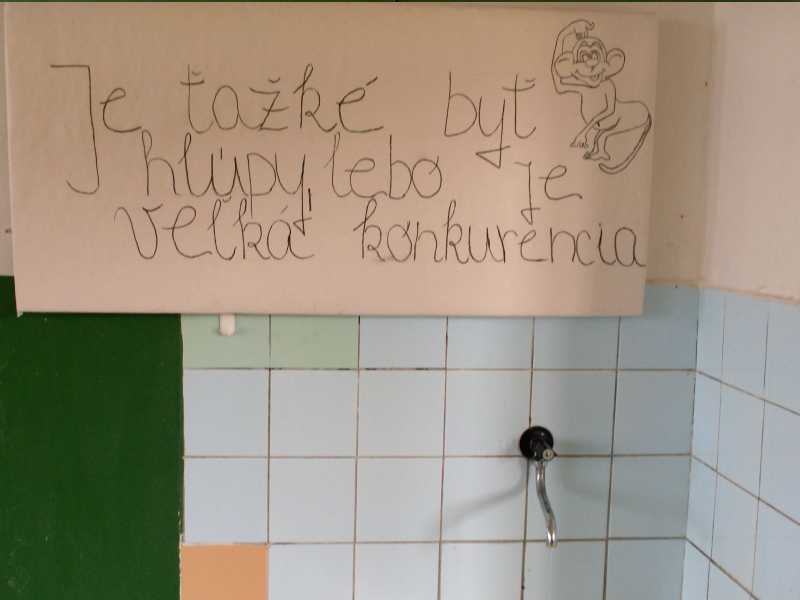 Je ťažké byť
hlúpy, lebo je
veľká konkurencia